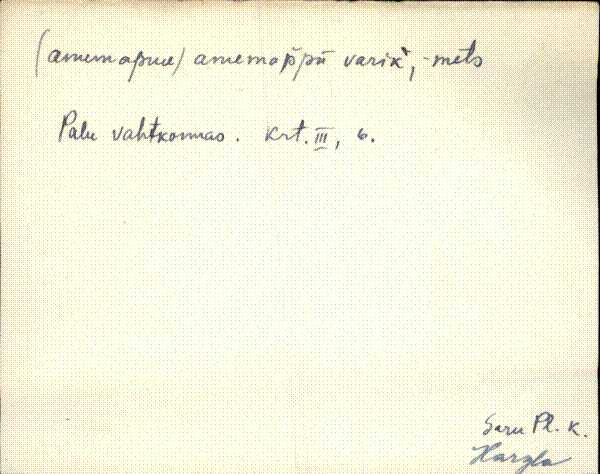 (annemäpuu) annemäp̆pū varik̀, -mets
Palu vahtkonnas. Krt. III, 6.
Saru Pl. K.
Hargla